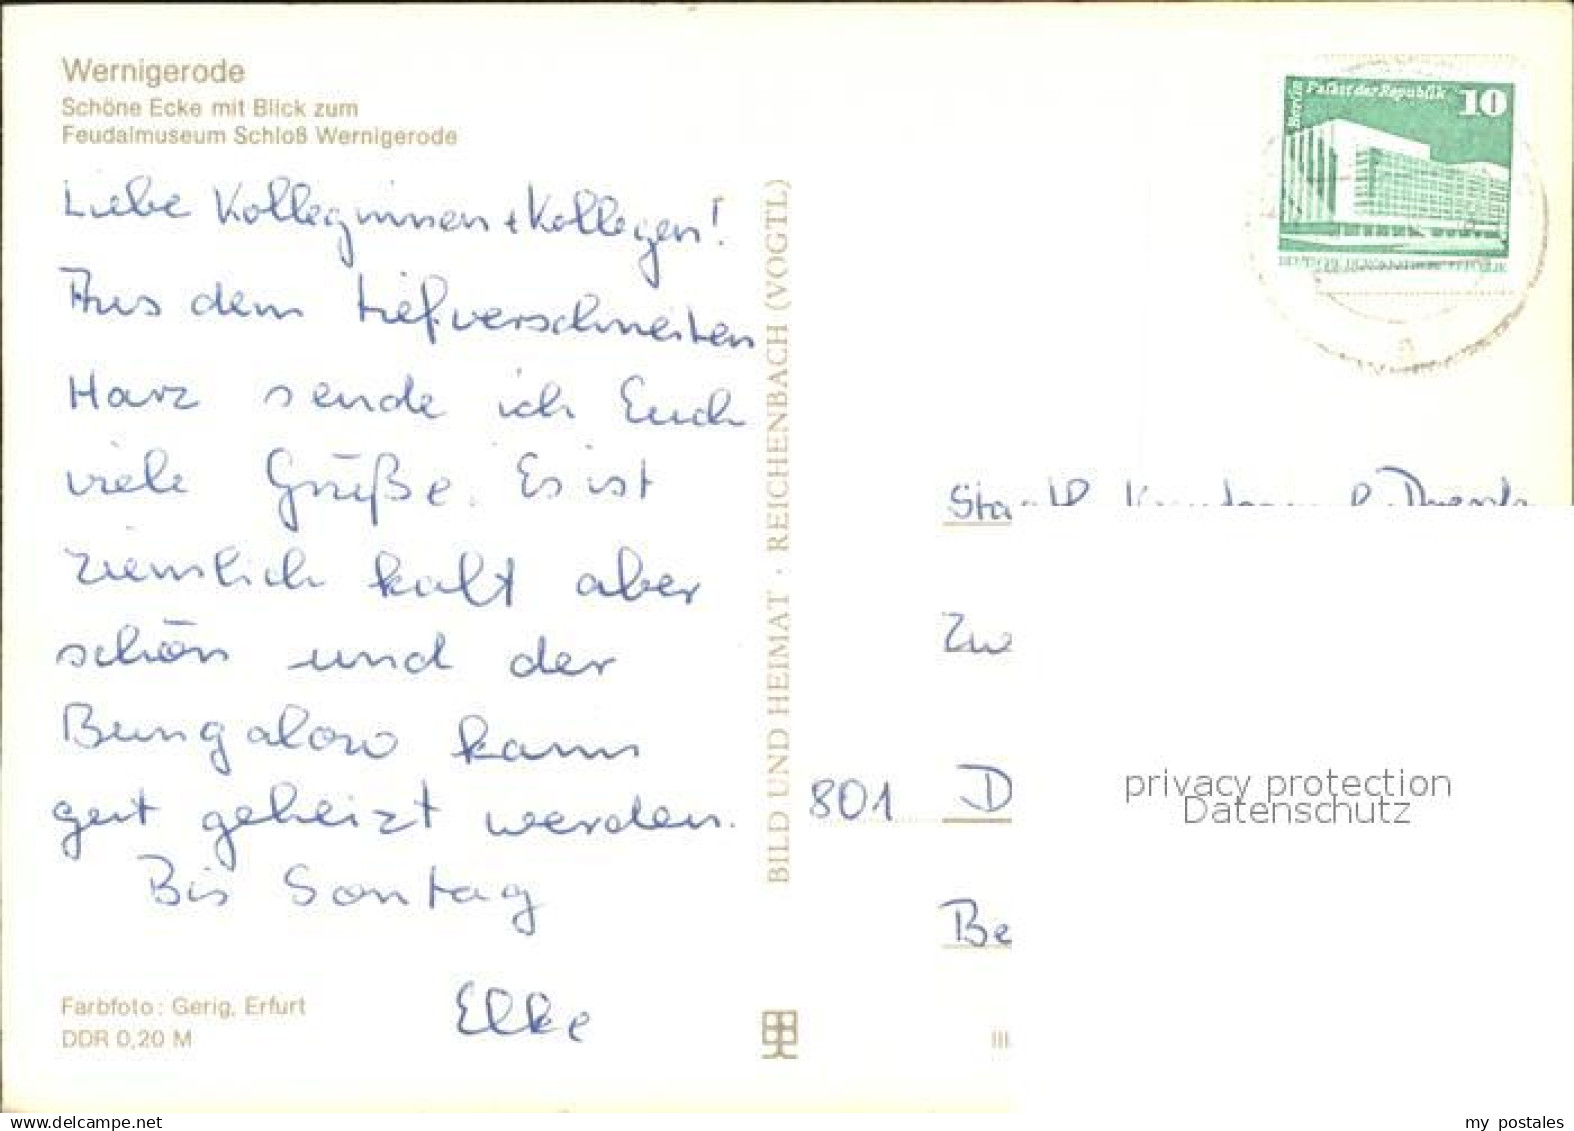 Wernigerode
Schöne Ecke mit Blick zum
Feudalmuseum Schloß Wernigerode
Liebe Kolleginnen + Kollegen!
Aus dem tiefverschneiten
Harz sende ich Euch
viele Grüße. Es ist
ziemlich kalt aber
schön und der
Bungalow kann
gut geheizt werden.
Bis Sontag
Elke
Farbfoto: Gerig, Erfurt
DDR 0,20 M
BILD UND HEIMAT · REICHENBACH (VOGTL)
Berlin
Palast der Republik 10
Zw
801 D
Be
privacy protection
Datenschutz
www.delcampe.net
my postales